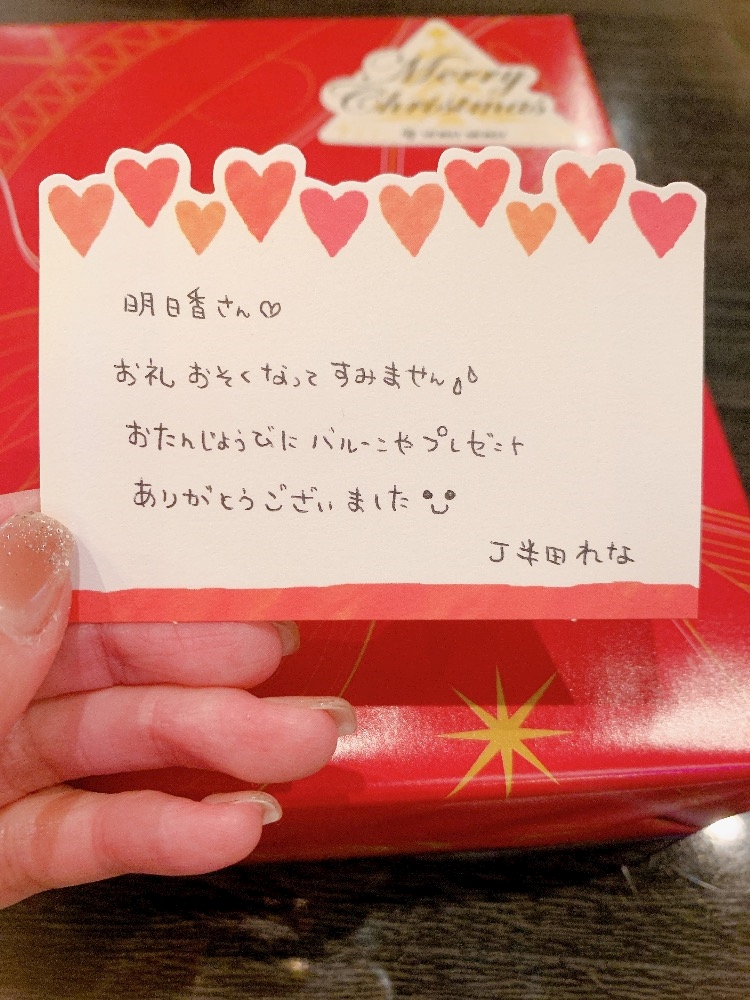 Merry
Christmas
明日香さん♡
お礼 おそくなって すみません
おたんじょうびに バルーンや プレゼント
ありがとうございました
半田れな